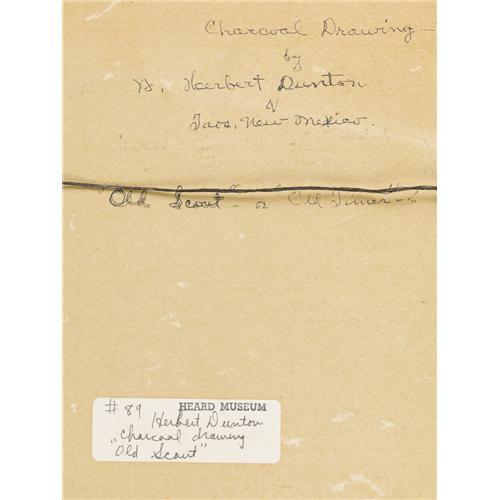 Charcoal Drawing —
by
W. Herbert Dunton
of
Taos, New Mexico.
"Old Scout" - or "Old Timer" -
# 89 HEARD MUSEUM
Herbert Dunton
"Charcoal drawing
Old Scout"